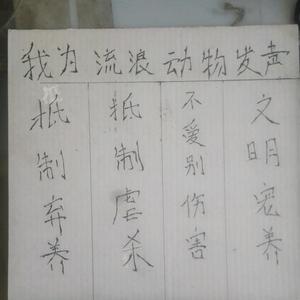 我为流浪动物发声
抵制弃养
抵制虐杀
不爱别伤害
文明宠养